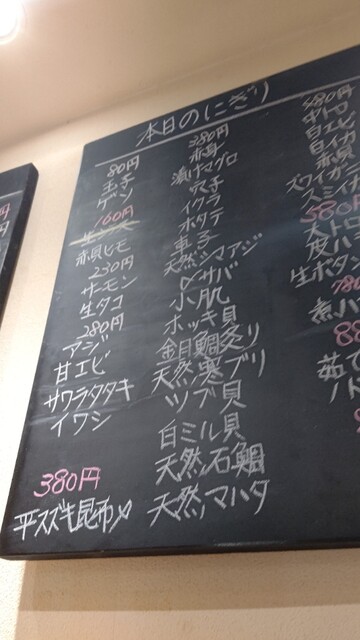 本日のにぎり
80円
玉子
ゲソ
160円
赤貝ヒモ
230円
サーモン
生タコ
280円
アジ
甘エビ
サワラタタキ
イワシ
380円
平スズキ昆布〆
380円
赤身
漬けマグロ
穴子
イクラ
ホタテ
車子
天然シマアジ
〆サバ
小肌
ホッキ貝
金目鯛炙り
天然寒ブリ
ツブ貝
白ミル貝
天然石鯛
天然マハタ
480円
中トロ
白エビ
白イカ
赤貝
ズワイガニ
スミイ
580円
大トロ
皮ハ
生ボタン
780
煮ハ
88
茹で
ノド